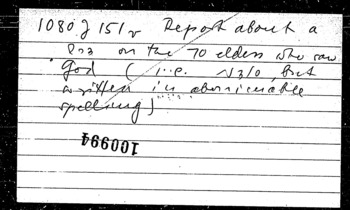 1080 J 151v Report about a
on the 70 elders who saw
God (i.e. but
written in abominable
spelling)
100994